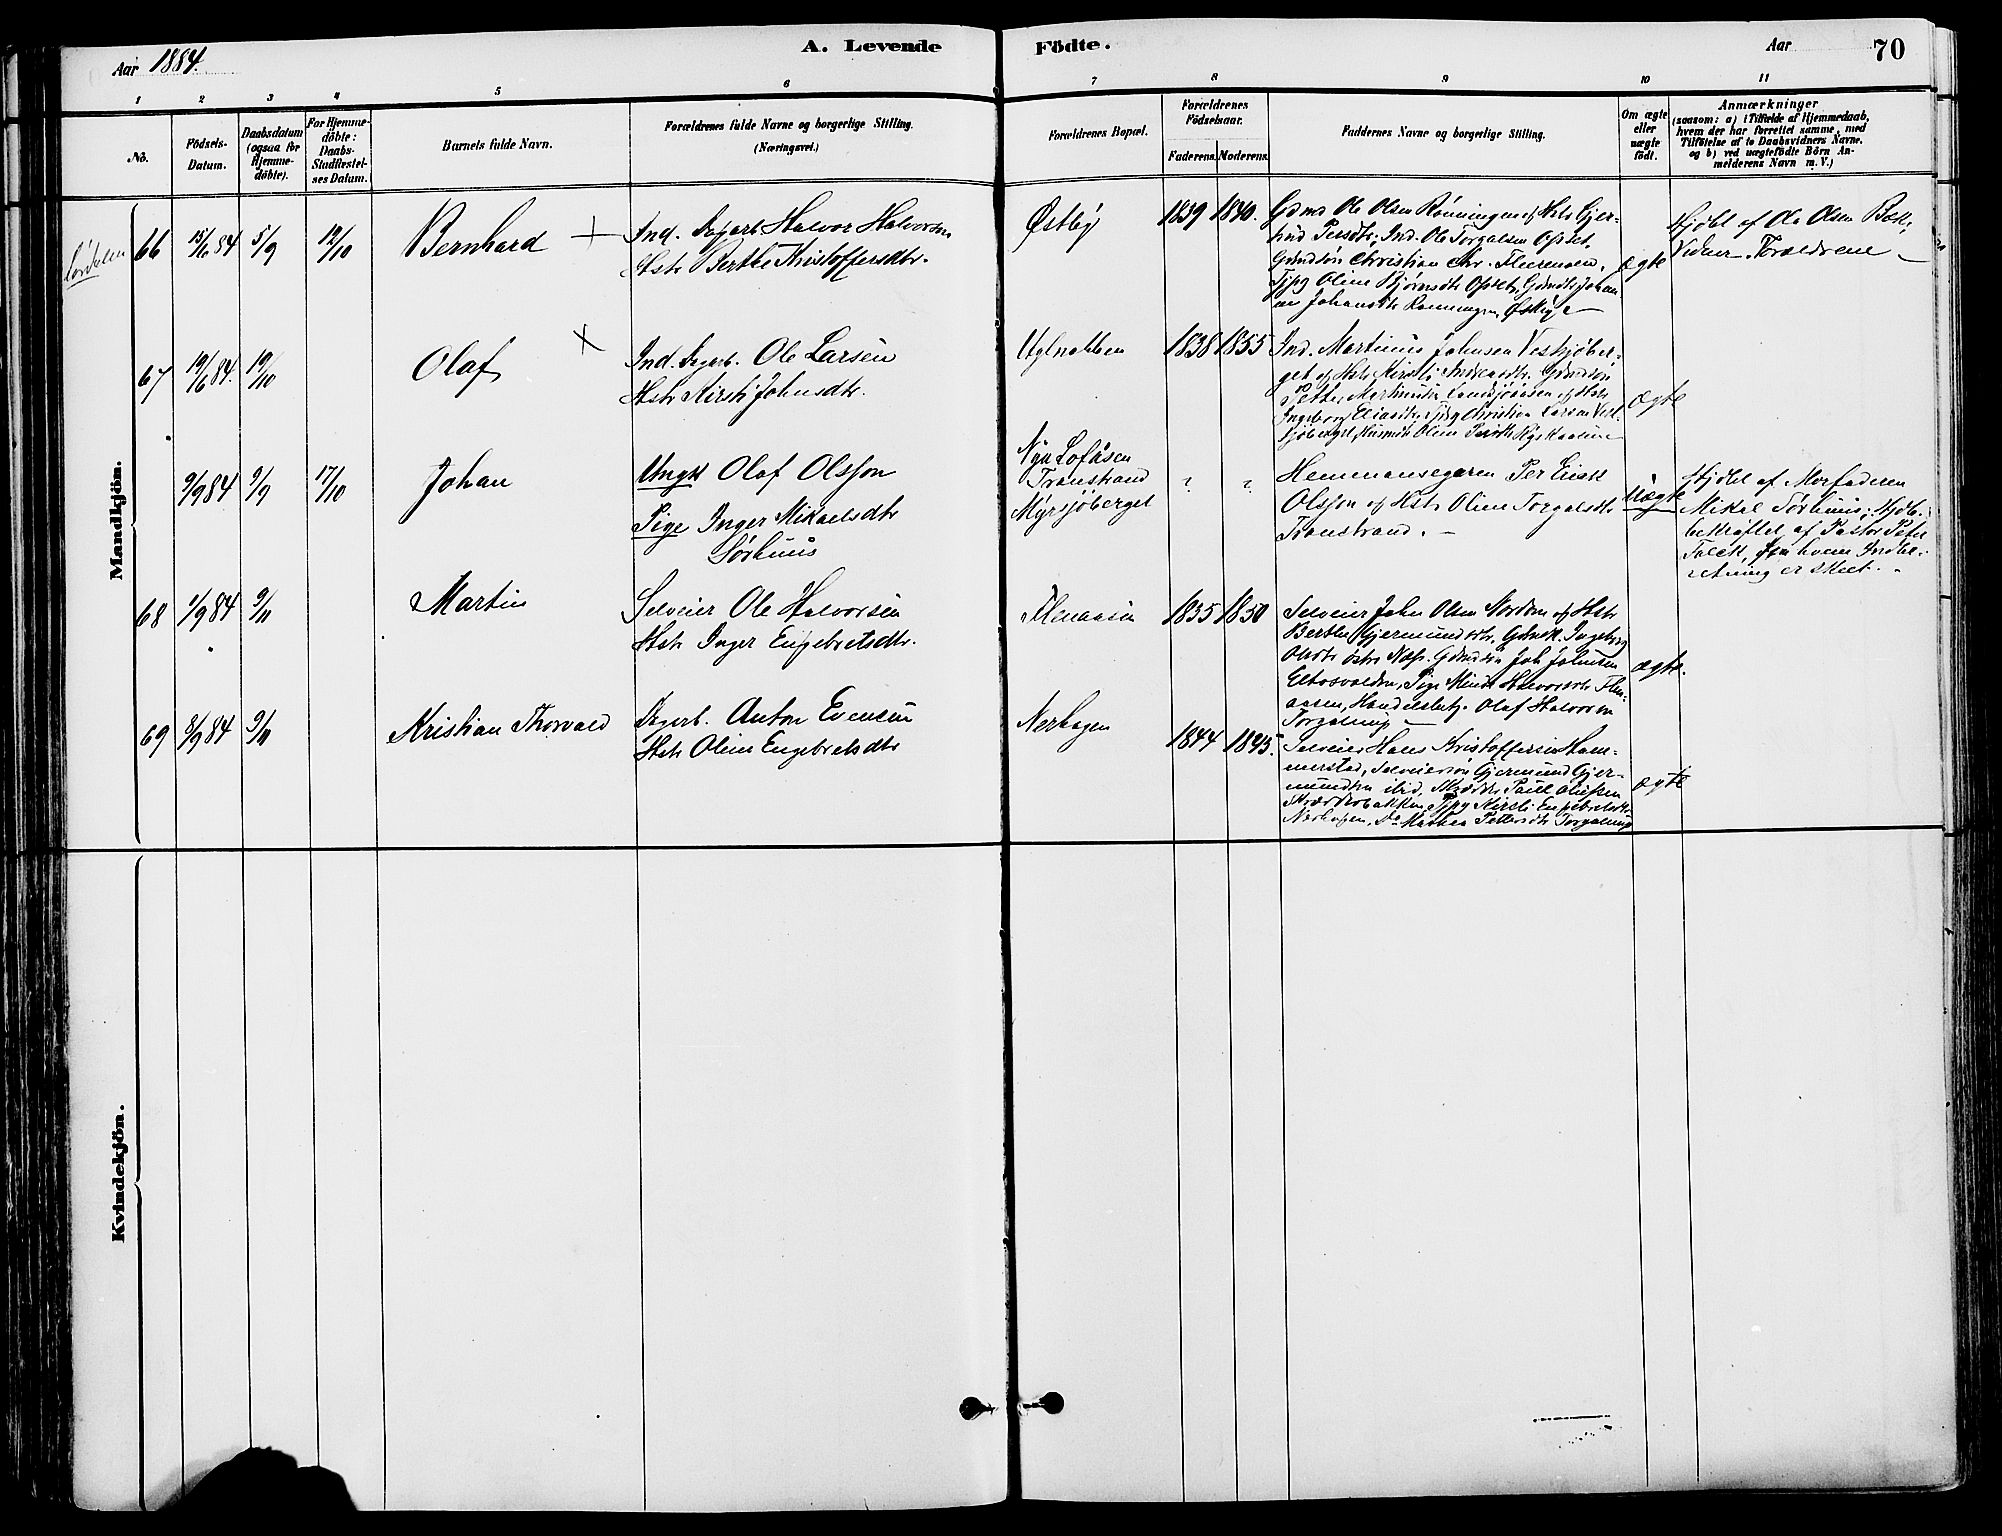 Aar 1884.
A. Levende
Födte.
Aar
70
1 2 3 4 5 6 7 8 9 10 11
No.
Födsels-
Datum.
Daabsdatum
(ogsaa for
Hjemme-
döbte).
For Hjemme-
döbte:
Daabs-
Stadfæstel-
ses Datum.
Barnets fulde Navn.
Forældrenes fulde Navne og borgerlige Stilling.
(Næringsvei.)
Forældrenes Bopæl.
Forældrenes
Födselsaar.
Faderens. Moderens.
Faddernes Navne og borgerlige Stilling.
Om ægte
eller
uægte
födt.
Anmærkninger
(saasom: a) i Tilfælde af Hjemmedaab,
hvem der har forrettet samme, med
Tilföielse af to Daabsvidners Navne.
og b) ved uægtefödte Börn An-
melderens Navn m. V.)
Mandkjön.
66 15/6 84 5/9 12/10
Bernhard
Ind. Dagarb. Halvor Halvorsen
Hstr Berthe Kristoffersdtr.
Østby
1839 1840.
Gdmd Ole Olsen Rønningen og Hstr Gjer-
trud Persdtr; Ind. Ole Torgalsen Opset,
Gdmdsøn Christian Chr. Flermoen,
Tjpg Oline Bjørnsdtr Opset, Gdmdtr Johan-
ne Johansdtr Rønningen, Østby
ægte
Hjdbt af Ole Olsen Bak.
Vidner Forældrene
67 19/6 84. 19/10
Olaf
Ind. Dagarb. Ole Larsen
Hstr Kirsti Johnsdtr.
Uglnabben
1838 1855
Ind. Martinus Johnsen Vestsjøber-
get og Hstr Kirsti Andersdtr. Gdmdsøn
Ingeborg Eliasdtr, Tjpg Christian Larsen Vest-
ægte
9/9 84 9/9 17/10
Johan
Ungk Olof Olsson
Pige Inger Mikaelsdtr
Sørhuus
Nya Lofåsen
Transtrand
Myrsjøberget
? ?
Hemmansegaren Per Erik
Olsson og Hstr Oline Torgalsdtr
Transtrand.
Uægte
Hjdbt af Morfaderen
Mikal Sørhuus; Hjdb.
bekræftet af Pastor Peter
Falck, fra hvem Indbe-
retning er skeet.
68 1/9 84 9/11
Martin
Selveier Ole Halvorsen
Hstr Inger Engebretsdtr.
Flenaasen
1835 1850
Selveier John Olsen Nordmo og Hstr
Berthe Gjermundsdtr, Gdmdk. Ingeborg
Olsdtr østre Næss. Gdmdsøn Joh Johnsen
Eltosvolden, Pige Mina Halvorsdtr Flen-
aasen, Handelsbetj. Olaf Halvorsen
Torgalmyr
ægte.
69 8/9 84 9/11
Kristian Thorvald
Dagarb. Anton Evensen
Hstr Oline Engebretsdtr
Nerhagen
1844 1845.
Selveier Hans Kristoffersen Ham-
merstad, Selveiersøn Gjermund Gjer-
mundsen ibid, Skrædder Paul Olufsen
Skrædderbakken, Tjpg Kirsti Engebretsdtr
Nerhagen, Do Mathea Pettersdtr Torgalmyr
ægte
Kvindekjön.